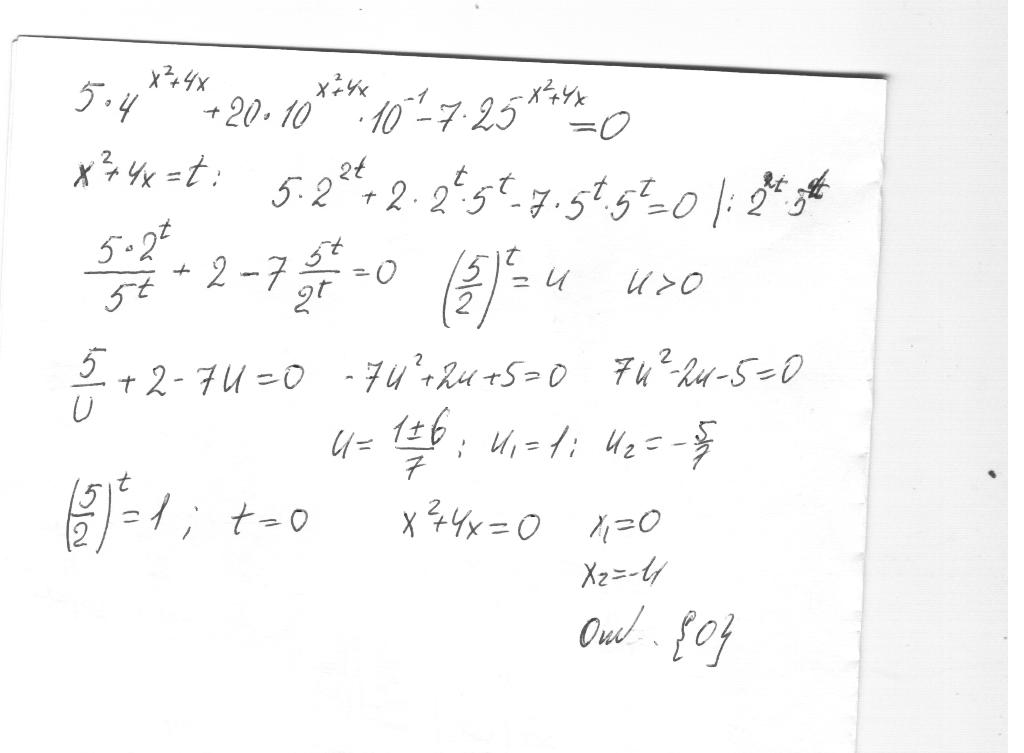 5·4^(x²+4x) + 20·10^(x²+4x)·10⁻¹ - 7·25^(x²+4x) = 0
x²+4x = t: 5·2^(2t) + 2·2^t·5^t - 7·5^t·5^t = 0 |: 2^t·5^t
(5·2^t)/(5^t) + 2 - 7 (5^t)/(2^t) = 0 (5/2)^t = u u>0
5/u + 2 - 7u = 0 -7u²+2u+5=0 7u²-2u-5=0
u = (1±6)/7; u₁=1; u₂ = -5/7
(5/2)^t = 1; t=0 x²+4x=0 x₁=0
x₂=-4
Отв. {0}